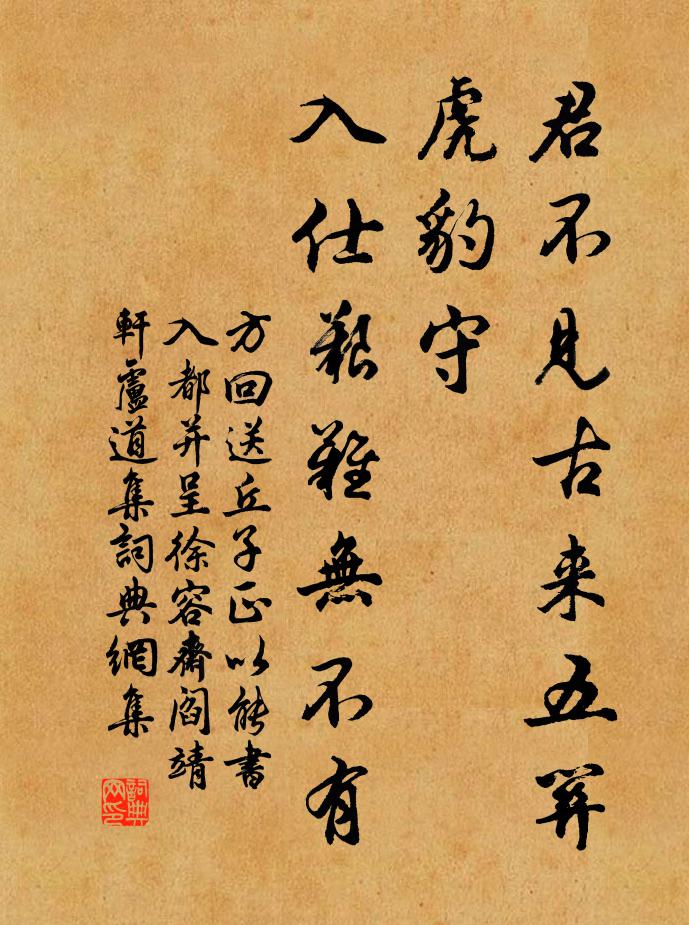 君不見古来五關
虎豹守
入仕艱難無不有
方回送丘子正以能書
入都并呈徐容齋閻靖
軒盧道集詞典網集
詞典
网印